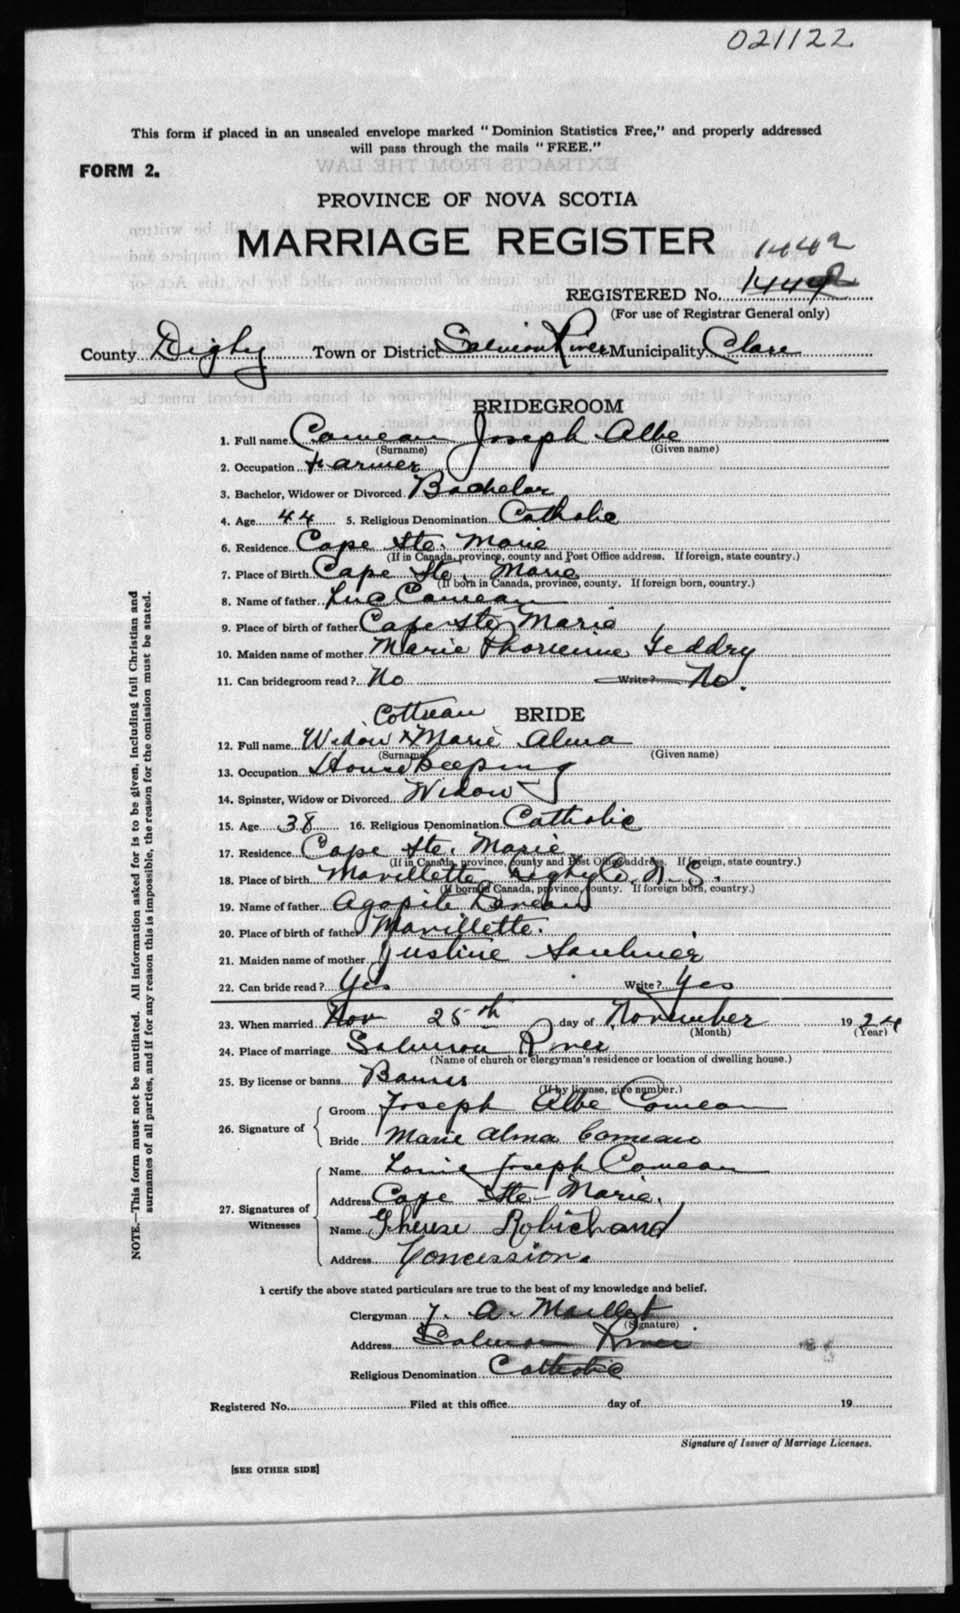 021122
This form if placed in an unsealed envelope marked "Dominion Statistics Free," and properly addressed
will pass through the mails "FREE."
FORM 2.
PROVINCE OF NOVA SCOTIA
MARRIAGE REGISTER
1442
REGISTERED No. 1442
(For use of Registrar General only)
County Digby Town or District Salmon River Municipality Clare
BRIDEGROOM
1. Full name Comeau Joseph Albe
(Surname) (Given name)
2. Occupation Farmer
3. Bachelor, Widower or Divorced Bachelor
4. Age 44 5. Religious Denomination Catholic
6. Residence Cape Ste. Marie
(If in Canada, province, county and Post Office address. If foreign, state country.)
7. Place of Birth Cape Ste. Marie
(If born in Canada, province, county. If foreign born, country.)
8. Name of father Luc Comeau
9. Place of birth of father Cape Ste Marie
10. Maiden name of mother Marie Geddry
11. Can bridegroom read? No Write? No.
BRIDE
12. Full name Widow Marie Alma
(Surname) (Given name)
13. Occupation House Keeping
14. Spinster, Widow or Divorced Widow
15. Age 38 16. Religious Denomination Catholic
17. Residence Cape Ste. Marie
(If in Canada, province, county and Post Office address. If foreign, state country.)
18. Place of birth Mavillette Digby Co. N. S.
(If born in Canada, province, county. If foreign born, country.)
19. Name of father Agapite Deveau
20. Place of birth of father Mavillette.
21. Maiden name of mother Justine Saulnier
22. Can bride read? Yes Write? Yes
23. When married Nov 25th day of November 1924
(Month) (Year)
24. Place of marriage Salmon River
(Name of church or clergyman's residence or location of dwelling house.)
25. By license or banns Banns
(If by license, give number.)
26. Signature of
Groom Joseph Albe Comeau
Bride Marie Alma Comeau
27. Signatures of Witnesses
Name Louis Joseph Comeau
Address Cape Ste-Marie.
Name Therese Robichaud
Address Concession.
I certify the above stated particulars are true to the best of my knowledge and belief.
Clergyman A. Maillet
(Signature)
Address Salmon River
Religious Denomination Catholic
Registered No. Filed at this office day of 19
Signature of Issuer of Marriage Licenses.
[SEE OTHER SIDE]
NOTE.—This form must not be mutilated. All information asked for is to be given, including full Christian and
surnames of all parties, and if for any reason this is impossible, the reason for the omission must be stated.